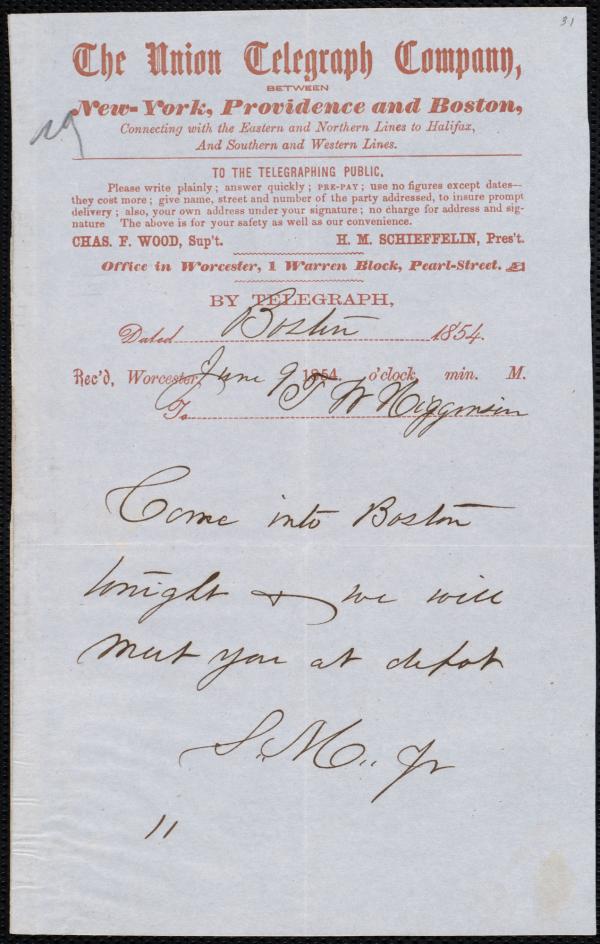 31
The Union Telegraph Company,
BETWEEN
New-York, Providence and Boston,
Connecting with the Eastern and Northern Lines to Halifax,
And Southern and Western Lines.
TO THE TELEGRAPHING PUBLIC.
Please write plainly; answer quickly; PRE-PAY; use no figures except dates—
they cost more; give name, street and number of the party addressed, to insure prompt
delivery; also, your own address under your signature; no charge for address and sig-
nature The above is for your safety as well as our convenience.
CHAS. F. WOOD, Sup't. H. M. SCHIEFFELIN, Pres't.
Office in Worcester, 1 Warren Block, Pearl-Street.
BY TELEGRAPH,
Dated Boston 1854.
Rec'd, Worcester, June 9 1854. o'clock, min. M.
To T W Higginson
Come into Boston
tonight & we will
meet you at depot
S. M., Jr
11